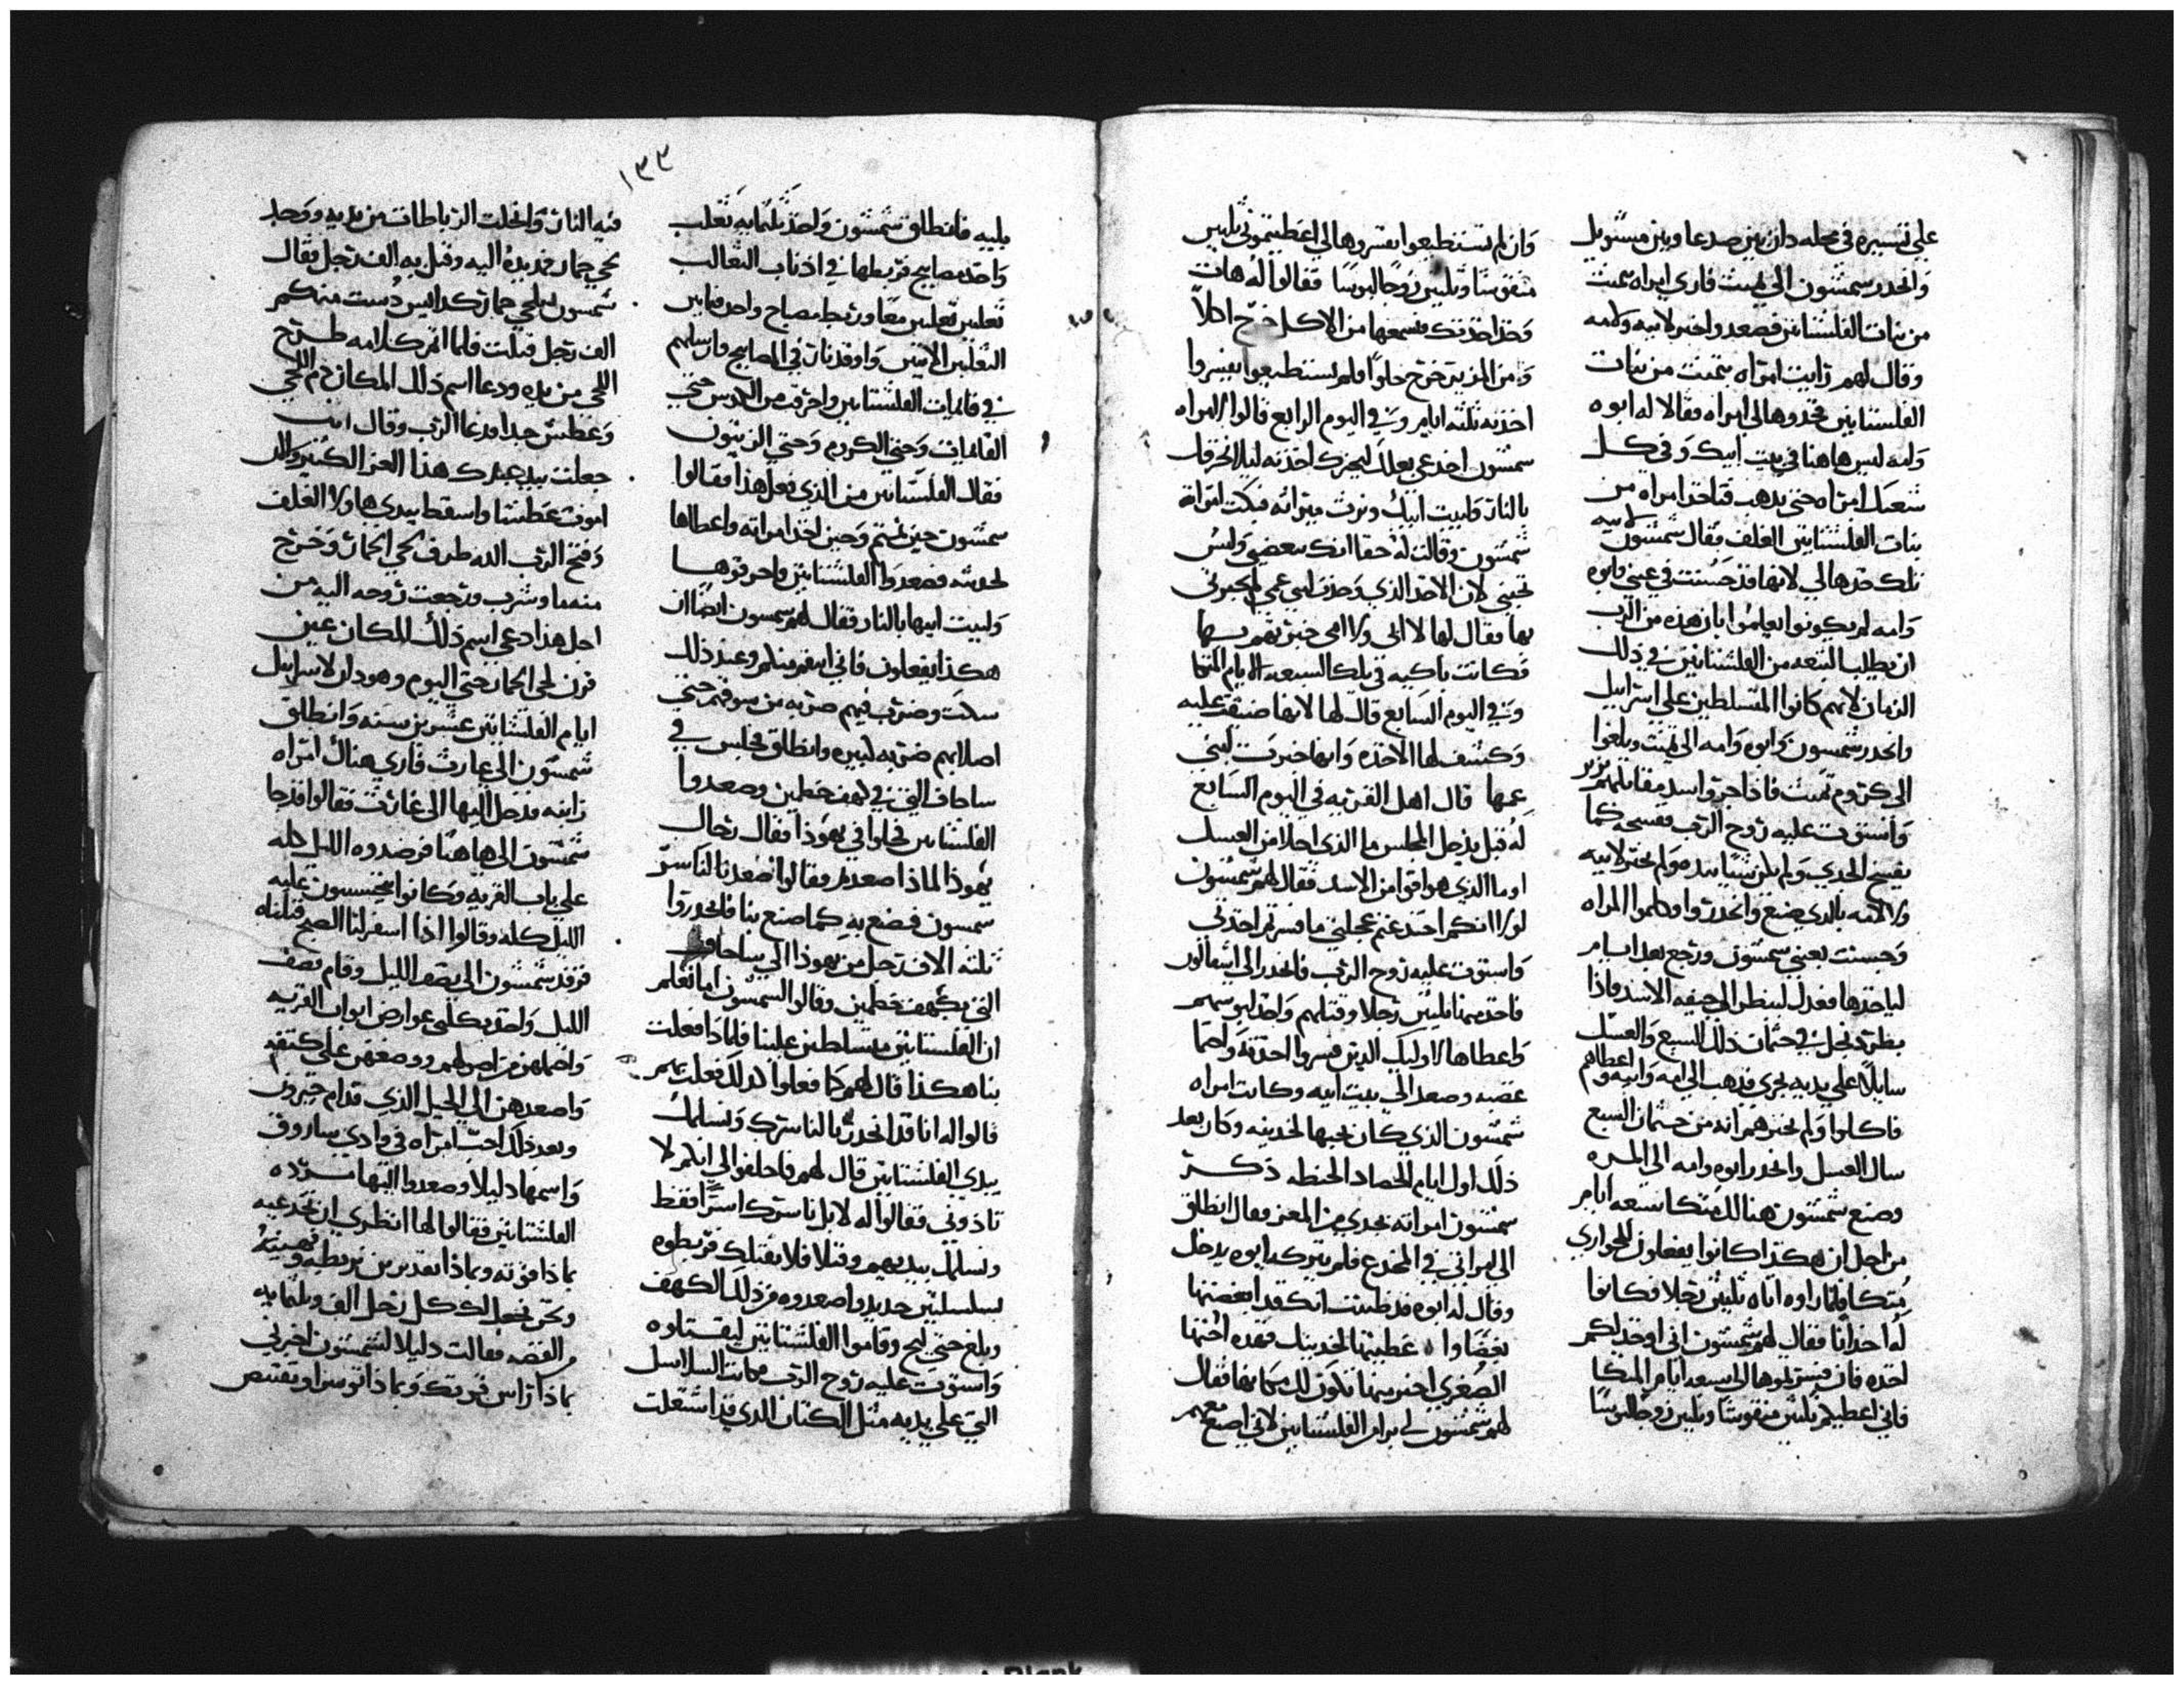 علي تسييره في محله دان بين صرعا وبين مستويل
وانحدر سمشون الي تمنت فاري امراه بتمنت
من بنات الفلشتانين فصعد واخبر لابيه ولامه
وقال لهم رايت امراه بتمنت من بنات
الفلشتانين تخدوها لي امراه فقالا له ابوه
وامه ليس هاهنا في بيت ابيك وفي كل
شعبك امراه حتي يذهب فتاخذ امراه من
بنات الفلشتانين الغلف فقال شمشون لابيه
تلك خدها لي لانها قد حسنت في عيني وابوه
وامه لم يكونوا يعلموا بان هذه من الرب
ان يطلب النقمه من الفلشتانين في ذلك
الزمان لانهم كانوا المتسلطين علي اسراييل
وانحدر شمسون وابوه وامه الي تمنت وبلغوا
الي كروم تمنت فاذا جروا اسد مقابلهم يزير
واستوت عليه روح الرب ففسخه كما
يفسخ الجدي ولم يكن شيا بيده ولم يخبر لابيه
ولا لامه بالدي صنع وانحدروا وكلموا المراه
وحسنت بعيني سمشون ورجع بعد ايام
لياخدها فعدل لينظر الي جيفه الاسد فاذا
بظرد نحل في جثمان ذلك السبع والعسل
سايلا علي يديه يجري فدهب الي امه وابيه واعطاهم
فاكلوا ولم يخبرهم انه من جثمان السبع
سال العسل وانحدر ابوه وامه الي المره
وصنع شمشون هنالك متكا سبعه ايام
من اجل ان هكذا كانوا يفعلون الجواري
متكا فلما راوه اتاه ثلثين رجلا فكانوا
له اخدانا فقال لهم شمشون اني اوخد لكم
اخده فان فسرتموها لي بسبعه ايام المتكا
فاني اعطيكم ثلثين منقوشا وثلثين زوجا لبوسا
وان لم تستطيعوا بفسروها لي اعطيتموني ثلثين
منقوشا وثلثين زوجا لبوسا فقالوا له هات
وخد اخدتك فنسمعها من الاكل خرج اكلا
ومن المرير خرج حلوا فلم يستطيعوا يفسروا
اخدته ثلثه ايام وفي اليوم الرابع قالوا لامراه
سمشون اخدعي بعلك ليخبرك اخدته ليلا نحرقك
بالنار وبيت ابيك ونرث ميراثه فبكت امراة
شمشون وقالت له حقا انك تبغضني وليس
تحبني لان الاخد الذي وخدت لبني عمي لم تخبرني
بها فقال لها لا ابي ولا امي خبرتهم بها
فكانت باكيه في تلك السبعه الايام المتكا
وفي اليوم السابع قال لها لانها ضيقت عليه
وكشف لها الاخده وانها خبرت لبني
عمها قال اهل القريه في اليوم السابع
له قبل يدخل المجلس ما الذي احلا من العسل
او ما الذي هو اقوا من الاسد فقال لهم شمشون
لولا انكم اختدعتم عجلتي ما فسرتم اخدتي
واستوت عليه روح الرب فانحدر الي اشقالون
فاخد منها ثلثين رجلا وقتلهم واخد لبوسهم
واعطاها لاوليك الدين فسروا اخدته واحما
غضبه وصعد الي بيت ابيه وكانت امراه
شمشون الذي كان يحبها لخدينه وكان بعد
ذلك اول ايام الحصاد الحنطه ذكر
سمشون امراته بجدي من المعز وقال انطلق
الي امراتي في المخدع فلم يتركه ابوه يدخل
وقال له ابوه قد ظننت انك قد ابغضتها
بغضا واعطيتها لخدينك فهذه اختها
الصغري اخير منها تكون لك مكانها فقال
لهم شمشون اني براء من الفلشتانين لاني اصنع معهم
١٣٣
بليه فانطلق شمشون واخذ ثلثمايه ثعلب
واخد مصابيح فربطها في اذناب الثعالب
ثعلبين ثعلبين معا وربط مصباح واحد فيما بين
الثعلبين الاثنين واوقد نار في المصابيح وارسلهم
في قايمات الفلشتانين واحرقت من الكدس حتي
القايمات وحتي الكروم وحتي الزيتون
فقال الفلشتانين من الذي فعل هذا فقالوا
سمشون ختن تمنتم وحين اخذ امراته واعطاها
لخدينه فصعدوا الفلشتانين واحرقوها
وبيت ابيها بالنار فقال لهم سمسون ايضا ان
هكذا يفعلون فاني انتقم منكم وعند ذلك
سكت وضرب فيهم ضربه من سوقهم حتي
اصلابهم ضربه كبيره وانطلق فجلس في
ساحاف التي في كهف خطمين وصعدوا
الفلشتانين فحلوا في يهوذا فقال رجال
يهوذا لماذا صعدتم وقالوا صعدنا لناسر
سمسون فنصنع به كما صنع بنا فانحدروا
ثلثه الاف رجل من يهوذا الي ساحاف
التي بكهف خطمين وقالوا لسمشون اما تعلم
ان الفلشتانين متسلطين علينا فلماذا فعلت
بنا هكذا قال لهم كما فعلوا كذلك فعلت بهم
قالوا له انا قد انحدرنا لناسرك ونسلمك
بيدي الفلشتانين قال لهم فاحلفوا لي انكم لا
تاذوني فقالوا له لا بل ناسرك اسرا فقط
ونسلمك بيديهم وقتلا فلا نقتلك فربطوه
بسلسلتين حديد واصعدوه من ذلك الكهف
وبلغ حتي لحي وقاموا الفلشتانين ليقتلوه
واستوت عليه روح الرب وكانت السلاسل
التي علي يديه مثل الكتان الذي قد اشتعلت
فيه النار وانحلت الرباطات من يديه ووجد
لحي حمار فمد يده اليه وقتل به الف رجل فقال
شمسون بلحي حمار كداديس دست منهم
الف رجل قتلت فلما اتم كلامه طرح
اللحي من يده ودعا اسم ذلك المكان دم اللحي
وعطش جدا ودعا الرب وقال انت
جعلت بيد عبدك هذا العز الكثير والان
اموت عطشا واسقط بيدي هاولا الغلف
وفتح الرب الله طرف لحي الحمار وخرج
منه ما وشرب ورجعت روحه اليه من
اجل هذا دعي اسم ذلك المكان عين
قرن لحي الحمار حتي اليوم وهو دان لاسراييل
ايام الفلشتانين عشرين سنه وانطلق
شمشون الي عازث فاري هناك امراه
زانيه فدخل اليها الي غازث فقالوا قد جا
شمشون الي هاهنا فرصدوه الليل كله
علي باب القريه وكانوا يتحسسون عليه
الليل كله وقالوا اذا اسفر لنا الصبح قتلناه
فرقد شمشون الي نصف الليل وقام نصف
الليل واخذ بكلتي عوارض ابواب القريه
واحملهن من اصولهم ووضعهن علي كتفه
واصعدهن الي الجبل الذي قدام حبرون
وبعد ذلك احب امراه في وادي ساروق
واسمها دليلا وصعدوا اليها سرده
الفلشتانين فقالوا لها انظري ان تخدعيه
بماذا قوته وبماذا نقدر من نربطه ونهينه
ونحن نعطيك كل رجل الف وثلثمايه
من الفضه فقالت دليلا لشمشون اخبرني
بماذا راس قوتك وبماذا توسر او تقتنص